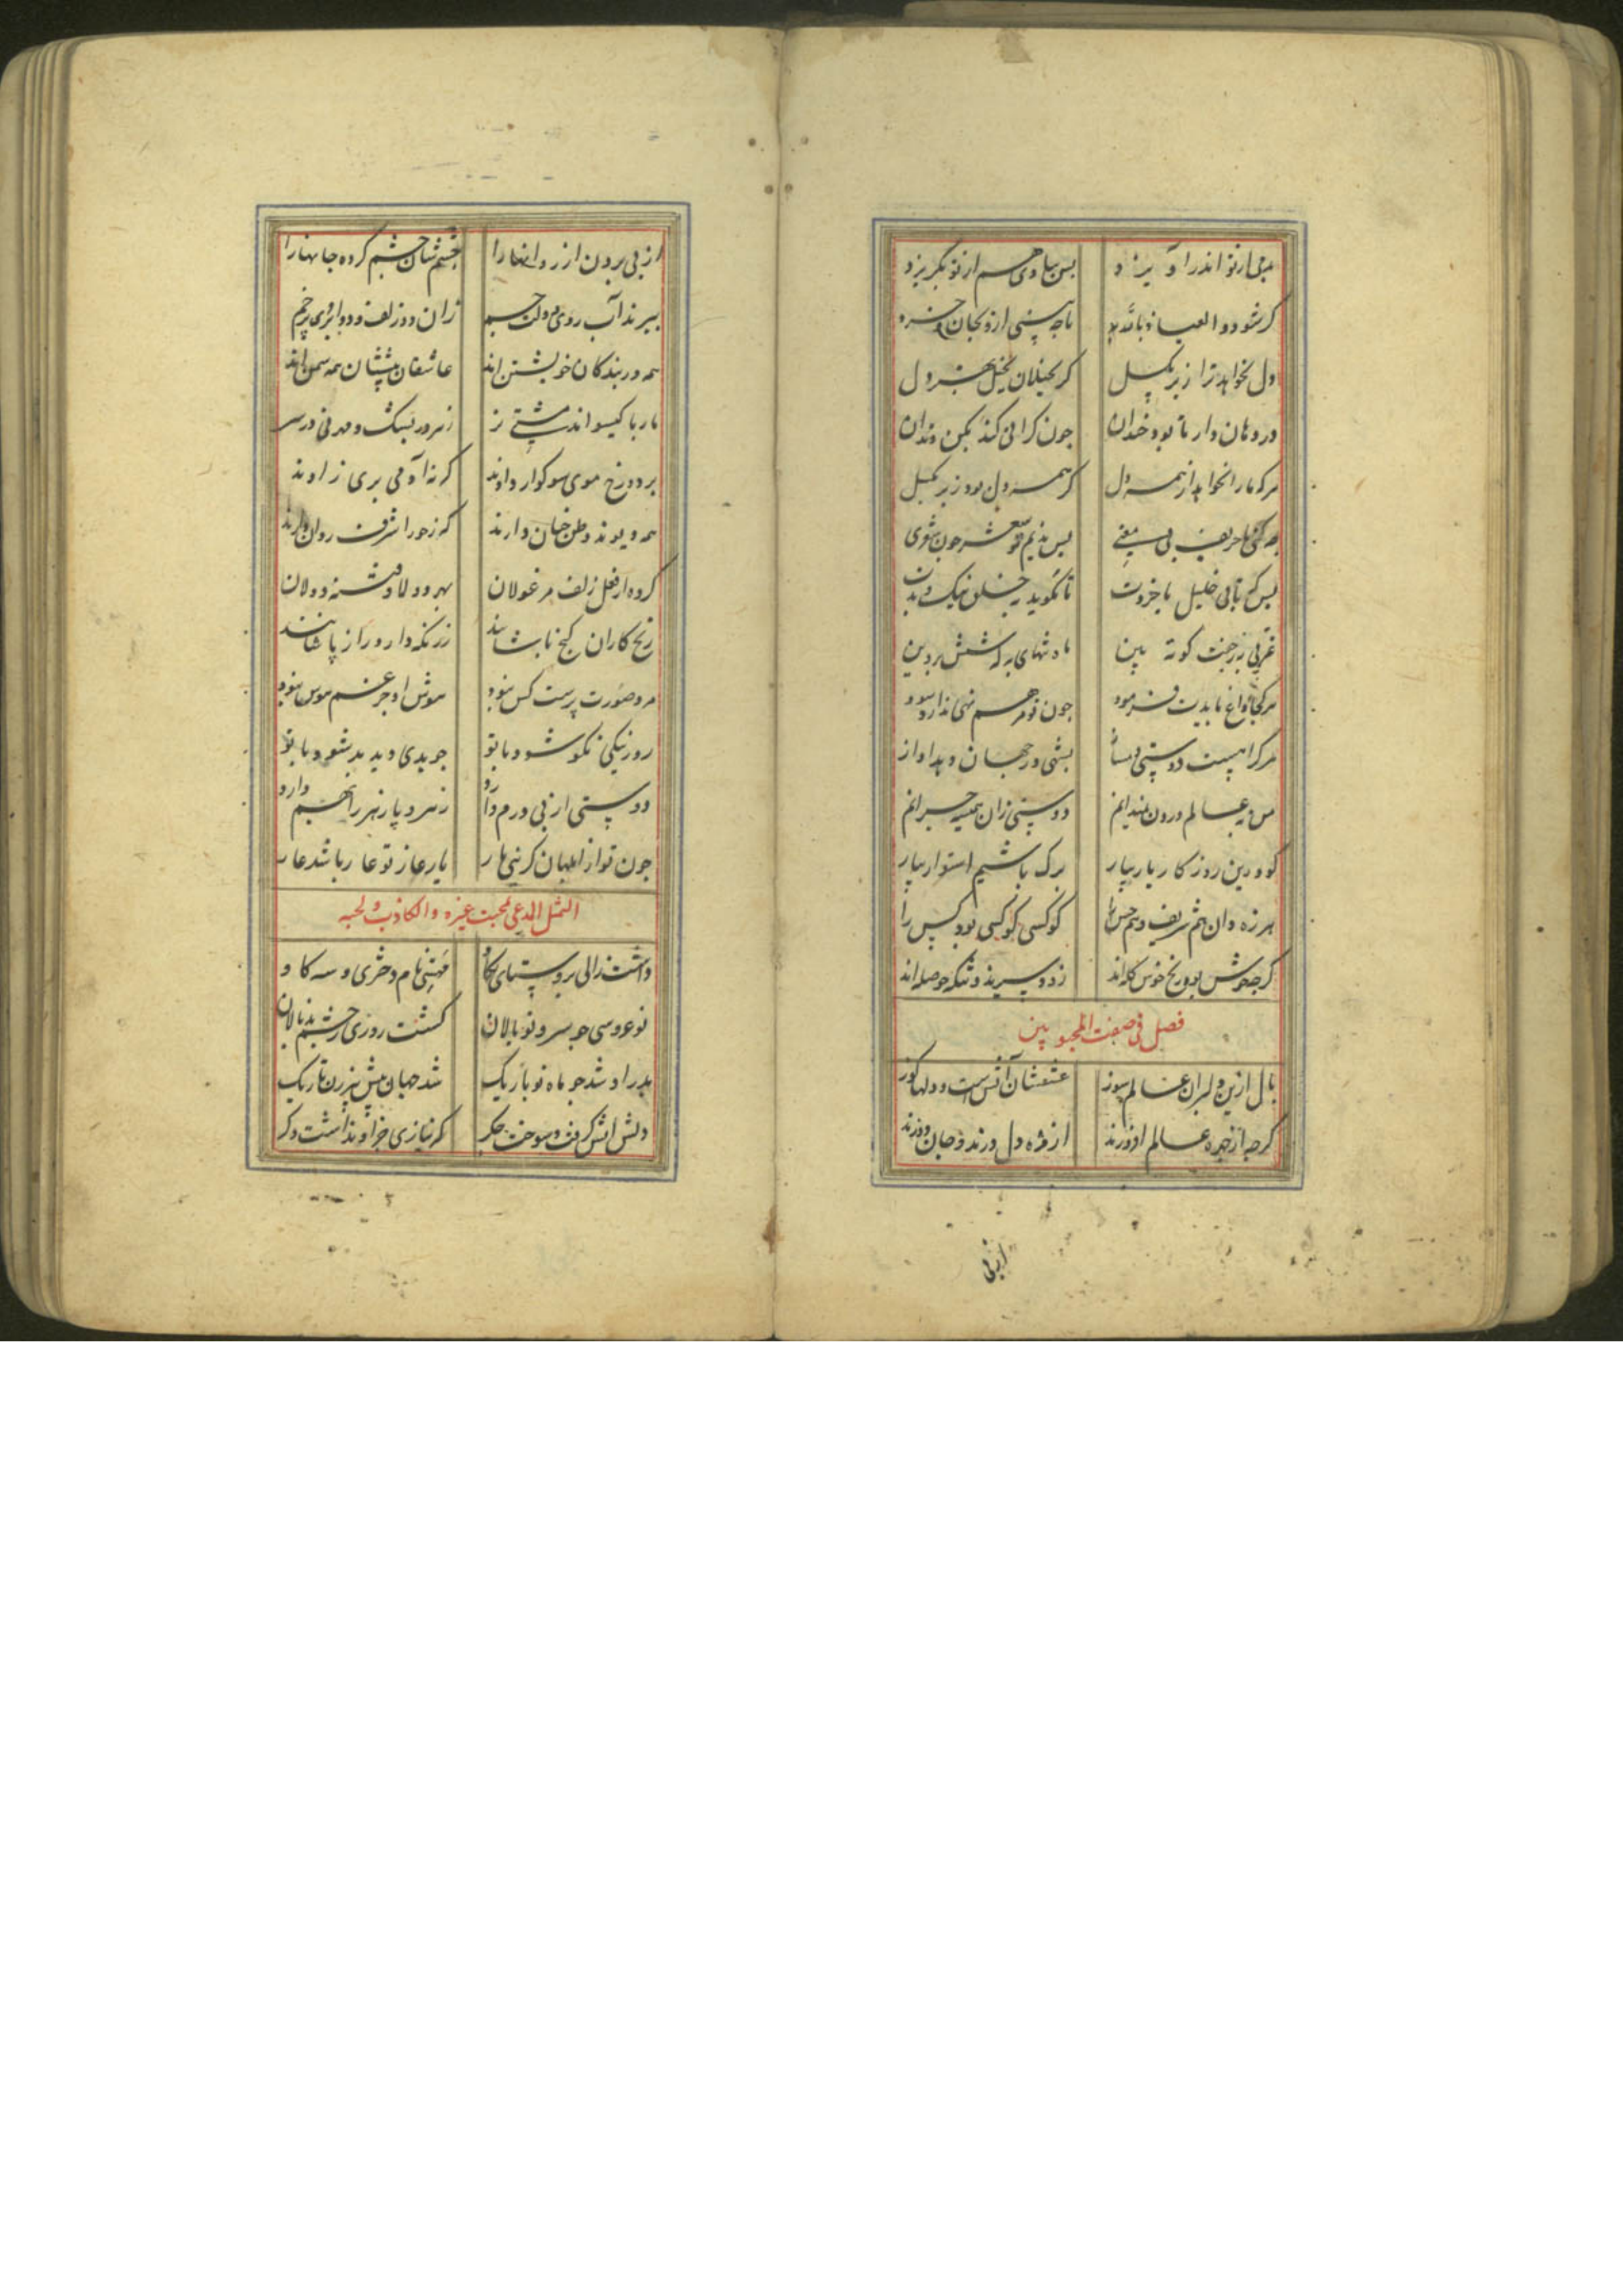 بی ارتو اندر او یزد پس بیادی هم از تو بکریزد
کر شود و العیاذ بالله بد تا چه بینی ازو بجان و خرد
دل نخواهد ترا ز بر مکسل کر بخیلان بخیل
در دهان دار تا بود خندان چون کرانی کند بکن دندان
هرکه ما را نخواهد از همه دل کر همه دل بود ز بر مکسل
چه کنی با حریف بی معنی پس ندیم تو شعر چون شعری
پس که تا بی خلیل با خردت تا نکوید خلق نیک و بدت
کوته بین
هرکجا داغ بایدت فرمود چون تو مرهم نهی ندارد سود
هرکرا هست دوستی دمساز بشی در جهان و بد او از
من بعالم درون نمیدانم دوستی زان همیشه حیرانم
کو درین روزکار یار بیار برک باشیم استوار بیار
هرزه دان هم شریف و هم خس را کو کسی کو کسی بود کس را
کر چه خوش بود ریخ خوش کله اند زود سیرند و تنکه حوصله اند
فصل فی صفت المحبوبین
بال ازین دلبران عالم سوز عشقشان آتش است و دلها کوز
کر چه از چهره عالم افروزند از مژه دل درند و جان دوزند
از پی
از پی بردن از ره انها را چشم شان چشم کرده جانها را
ببرند آب روی دولت جم زان دو زلف و دو ابروی پر خم
همه در بند کان خویشتن اند عاشقان پیششان همه سمن اند
مار با کیسو اند مشتی نر زهر در بسک و مهر نی در سر
بر دو رخ موی سوکوار دادند کر نه آدمی بری زادند
همه دیوند و ظن چنان دارند که ز حورا شرف روان دارند
کرده از فعل زلف مرغولان بهر دو لا و فتنه دولان
رنج کاران کنج ناباشند زر نکه دار و راز پاشانند
مرد صورت پرست کس نبود هوش او جز غم هوس نبود
روز نیکی نکو شود با تو چو بدی دید بد شود با تو
دوستی از پی درم دارد زهر دپا زهر را بهم دارد
چون تو از ابلهان کزینی یار یار عار تو عار باشد عار
التمثل المدعی لمحبت غیره والکاذب فی لحبه
داشت زالی بروستای تکاو مهستی نام دختری و سه کاو
نو عروسی چو سرو نو بالان کشت روزی ز چشم بد نالان
بدر او شد چو ماه نو باریک شد جهان پیش پیر زن تاریک
دلش آتش کرفت و سوخت جکر که نیازی جز او نداشت دکر